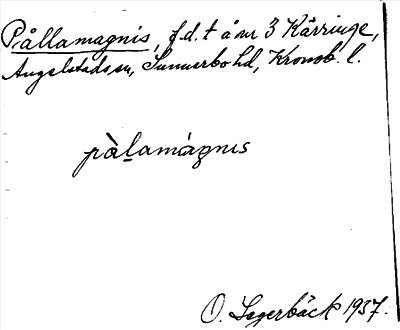 Pållamagnis, f.d. t å nr 3 Kärringe,
Angelstads sn, Sunnerbo hd, Kronob. l.
pàlamágnɩs
O. Lagerbäck 1937.